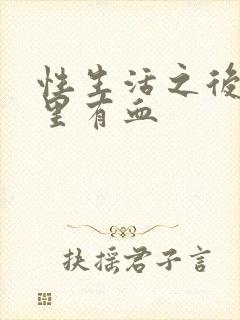 性生活之後
里有血
扶摇君子言